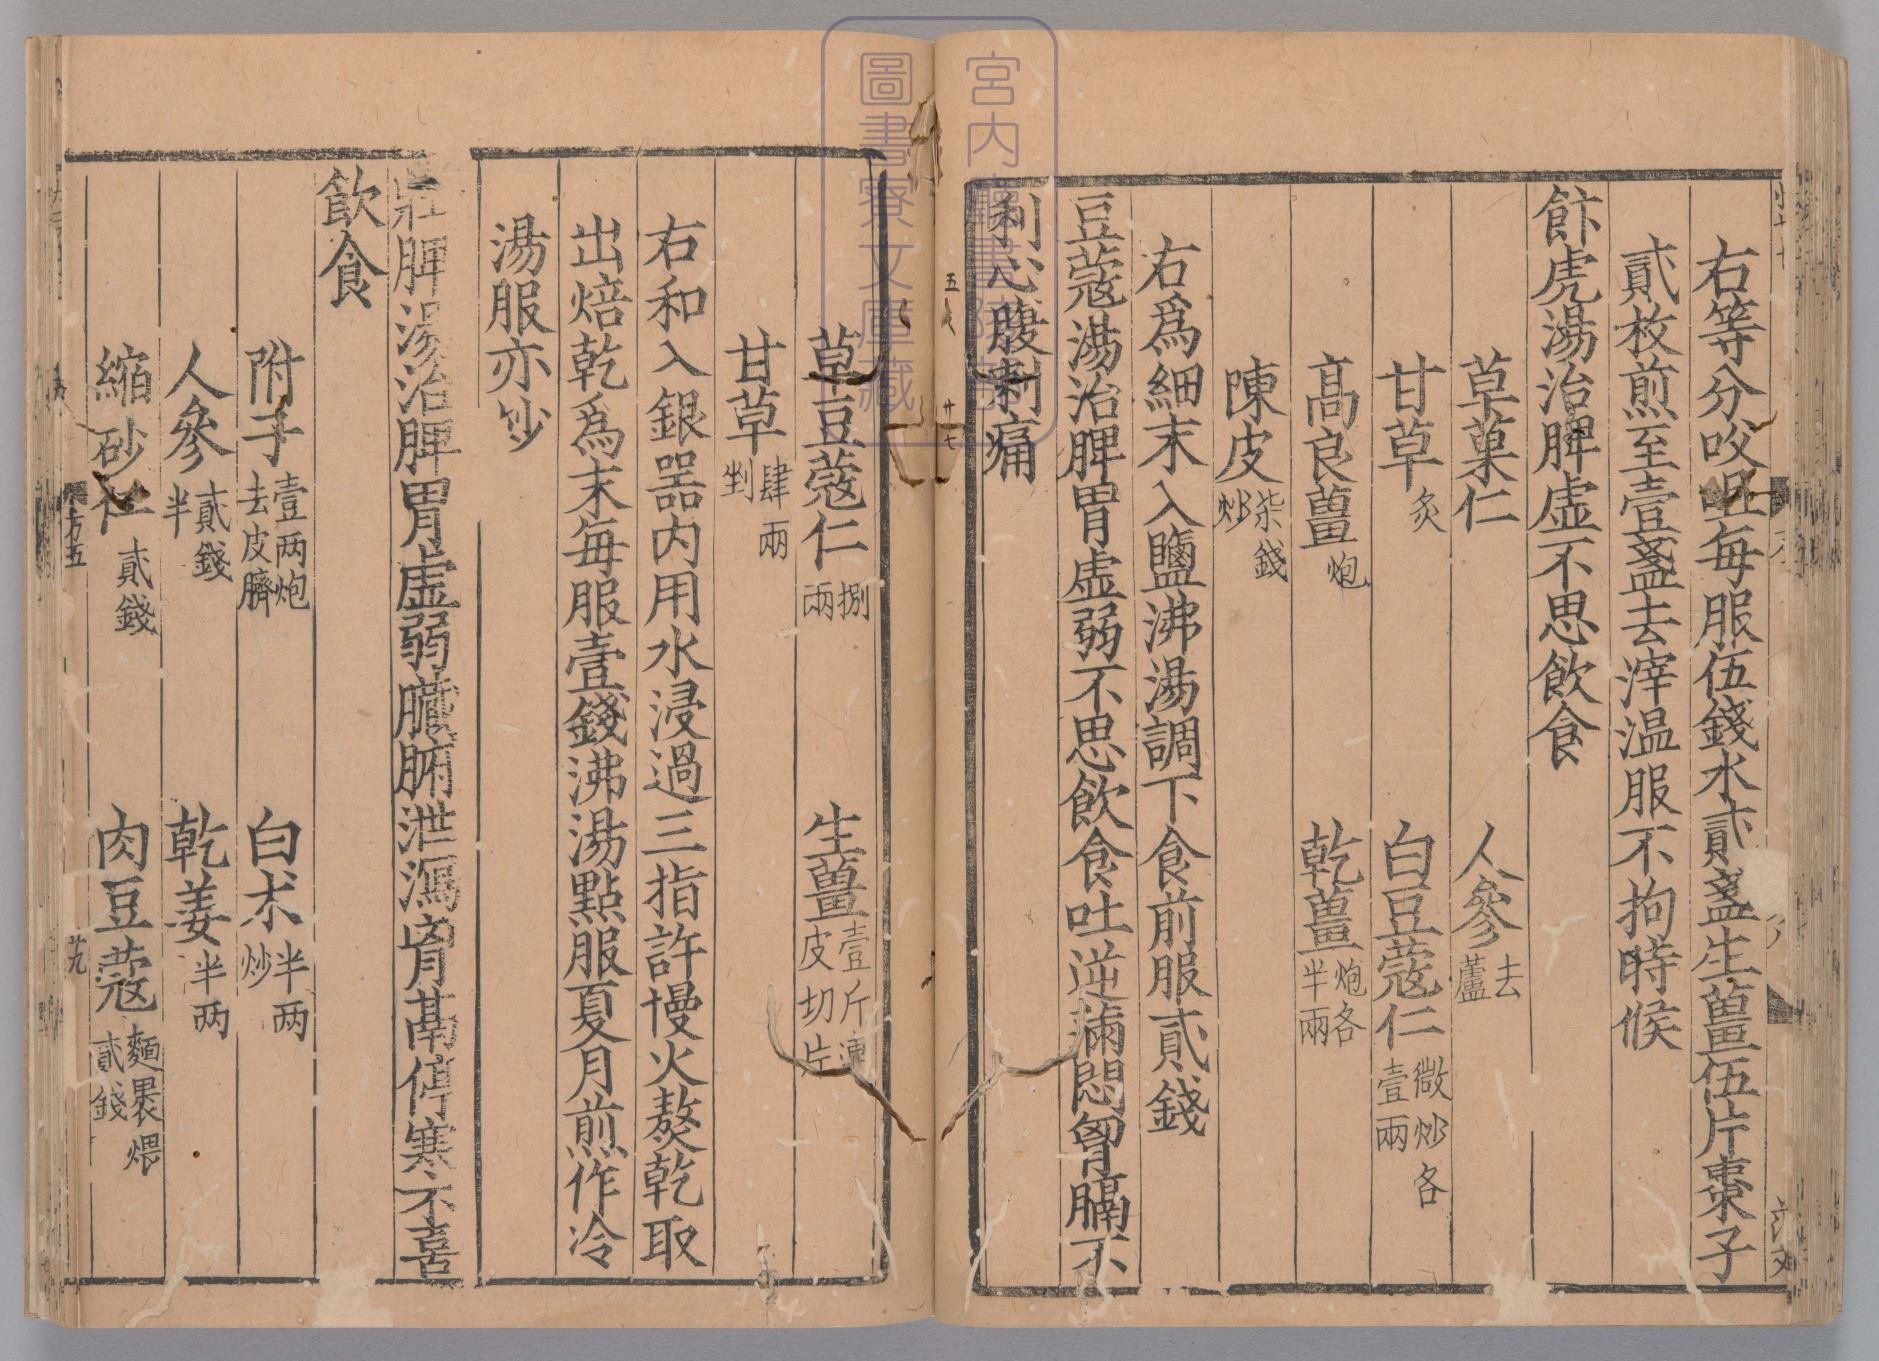 右等分㕮咀每服伍錢水貳盞生薑伍片棗子
貳枚煎至壹盞去滓温服不拘時候
飰虎湯治脾虛不思飲食
草菓仁 人參去蘆
甘草炙 白豆蔻仁微炒各壹兩
髙良薑炮 乾薑炮各半兩
陳皮柒錢炒
右爲細末入鹽沸湯調下食前服貳錢
豆蔻湯治脾胃虛弱不思飲食吐逆滿悶胷膈不
利心腹刺痛
草豆蔻仁捌兩 生薑壹斤連皮切片
甘草肆兩剉
右和入銀器内用水浸過三指許慢火熬乾取
出焙乾爲末每服壹錢沸湯點服夏月煎作冷
湯服亦妙
壯脾湯治脾胃虛弱臟腑泄瀉胷鬲停寒不喜
飲食
附子壹两炮去皮臍 白朮半两炒
人參貳錢半 乾姜半两
縮砂仁貳錢 肉豆蔻麵褁煨貳錢
方五
廿九
五
廿七
宮内廳書陵部
圖書寮文庫藏